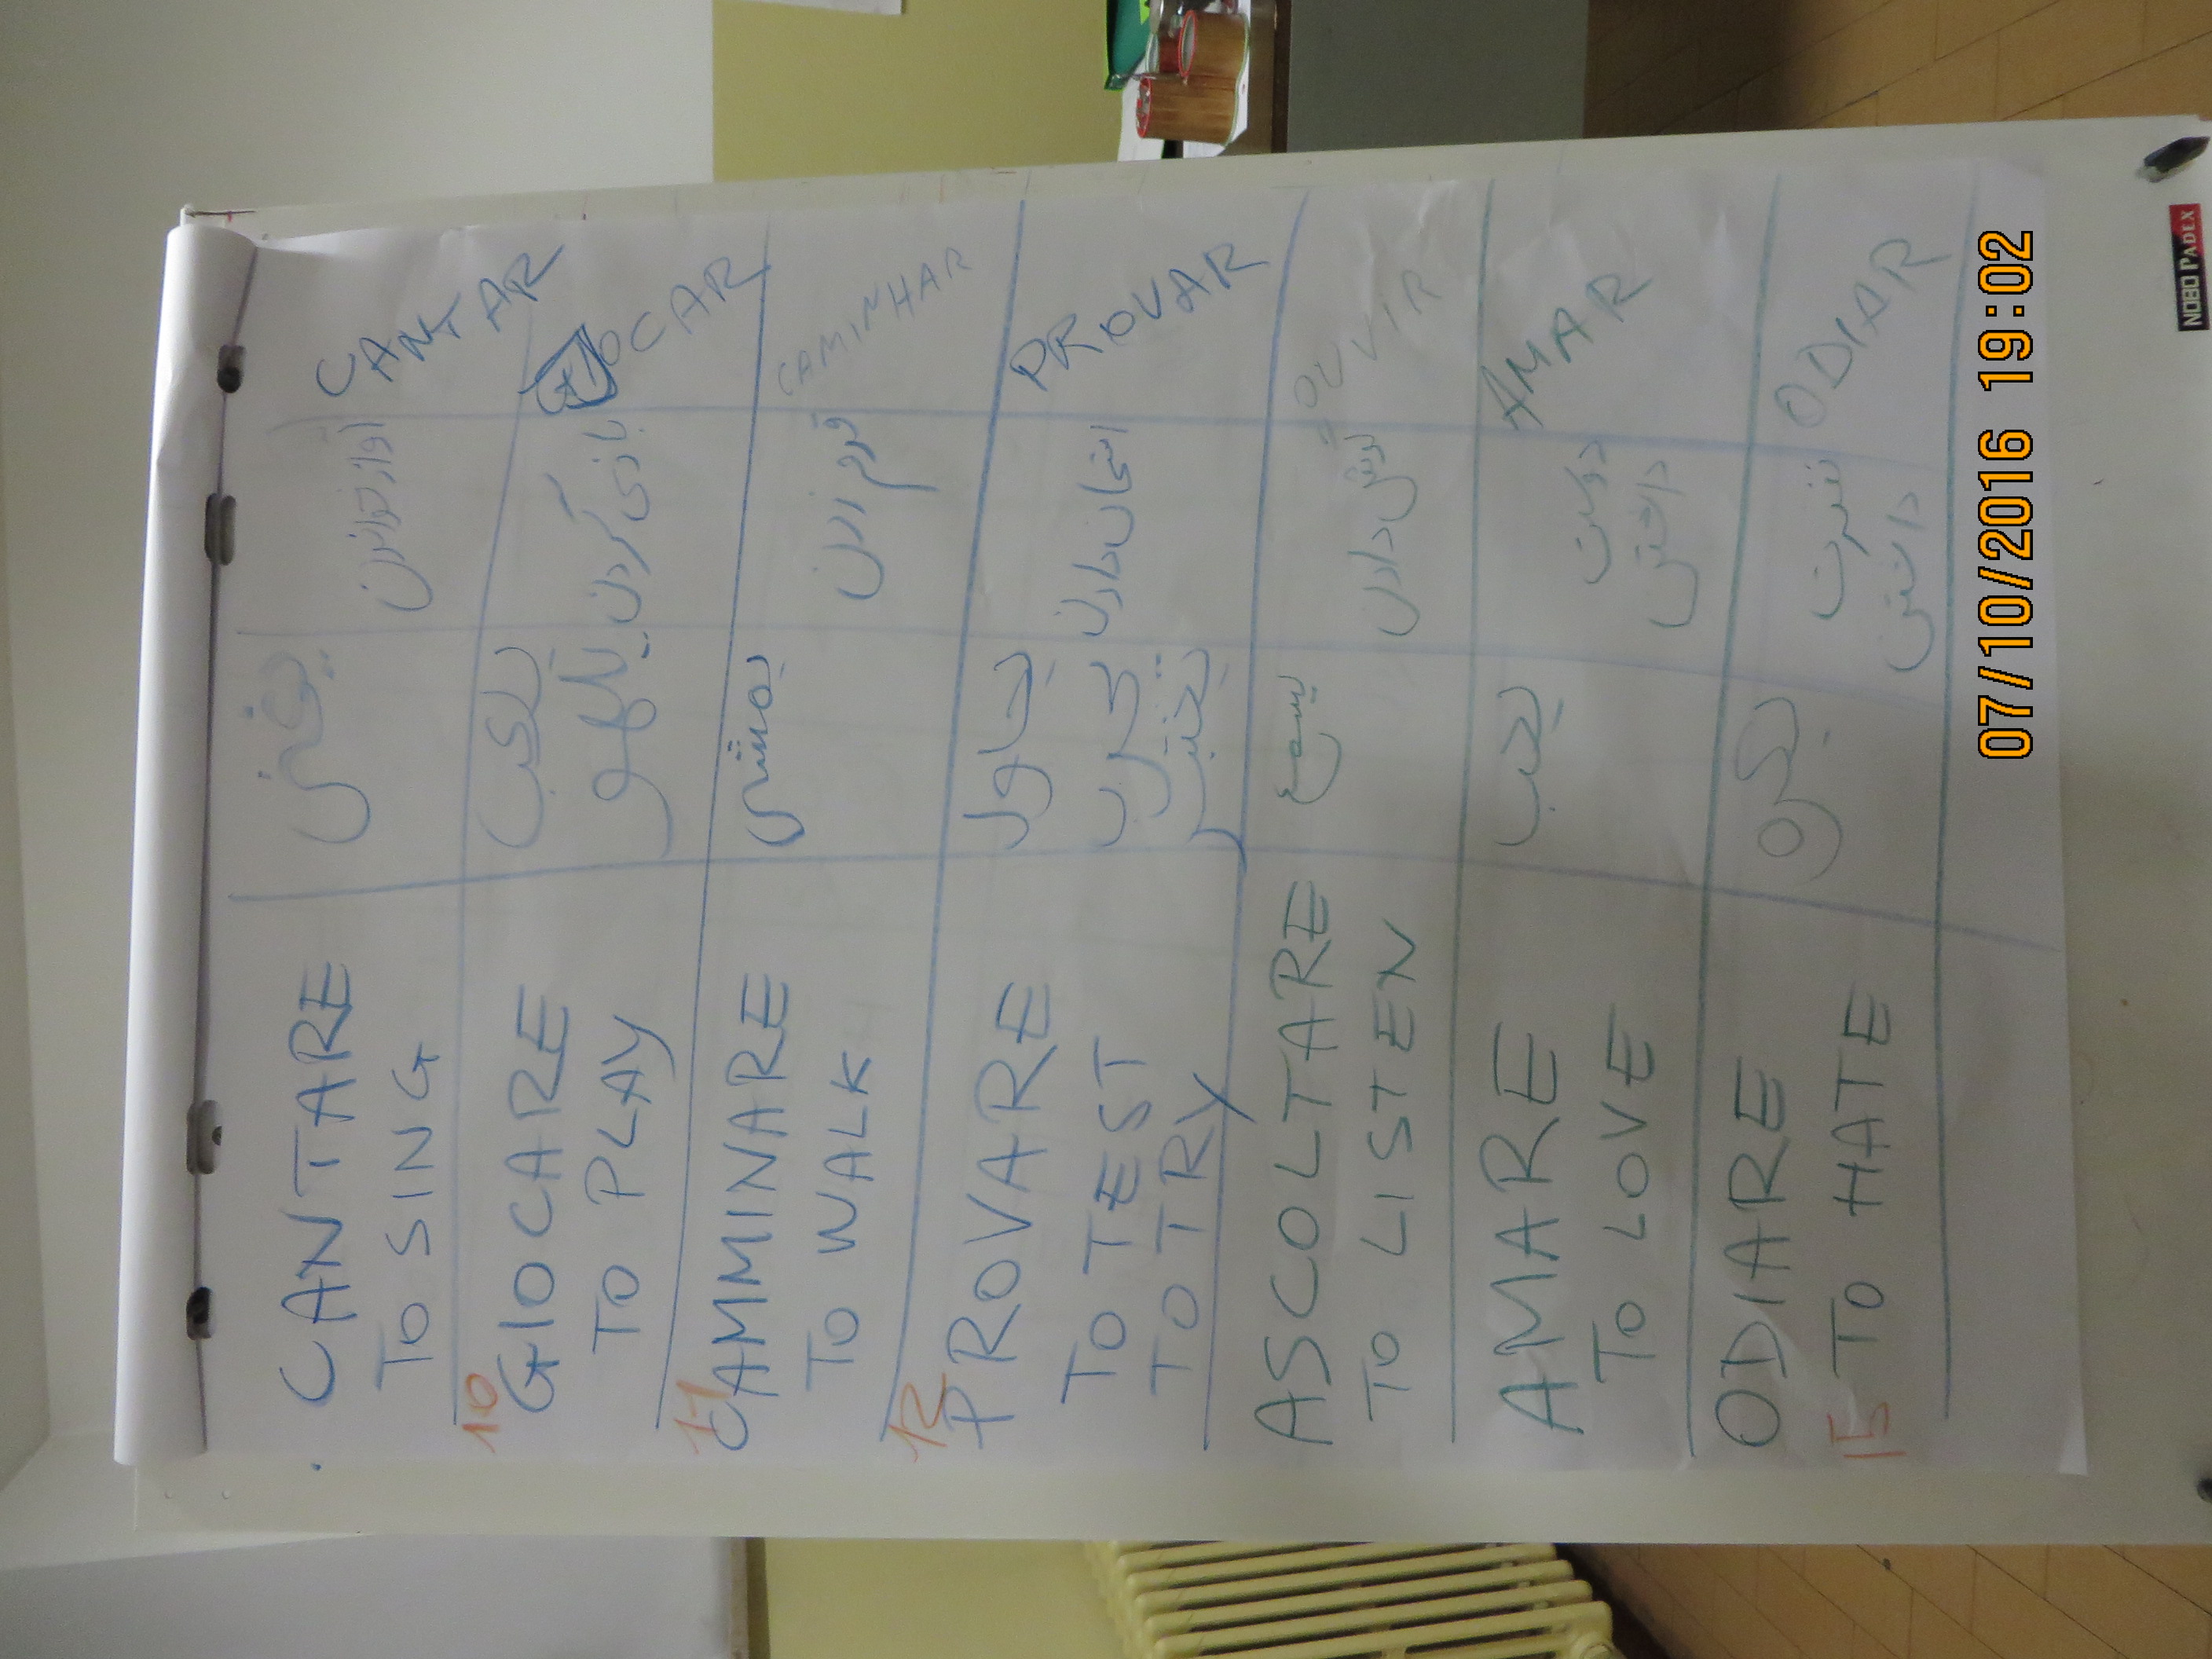 CANTARE
TO SING
يغني
آواز خواندن
CANTAR
10
GIOCARE
TO PLAY
يلعب
يلهو
بازی کردن
GIOCAR
11
CAMMINARE
TO WALK
يمشي
قدم زدن
CAMINHAR
12
PROVARE
TO TEST
TO TRY
يحاول
يجرب
يختبر
امتحان دادن
PROVAR
ASCOLTARE
TO LISTEN
يسمع
گوش دادن
OUVIR
AMARE
TO LOVE
يحب
دوست
داشتن
AMAR
ODIARE
TO HATE
15
يكره
نفرت
داشتن
ODIAR
NOBO PADEX
07/10/2016 19:02